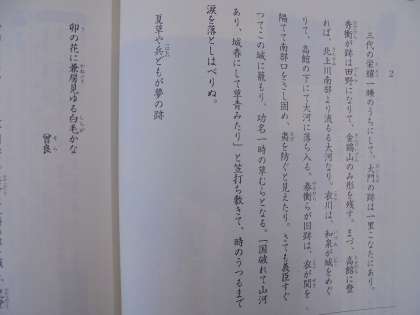 2
三代の栄耀一睡のうちにして、大門の跡は一里こなたにあり。
秀衡が跡は田野になりて、金鶏山のみ形を残す。まづ、高館に登
れば、北上川南部より流るる大河なり。衣川は、和泉が城をめぐ
りて、高館の下にて大河に落ち入る。泰衡らが旧跡は、衣が関を
隔てて南部口をさし固め、夷を防ぐと見えたり。さても義臣すぐ
つてこの城に籠もり、功名一時の草むらとなる。「国破れて山河
あり、城春にして草青みたり」と笠打ち敷きて、時のうつるまで
涙を落としはべりぬ。
夏草や兵どもが夢の跡
卯の花に兼房見ゆる白毛かな
曾良